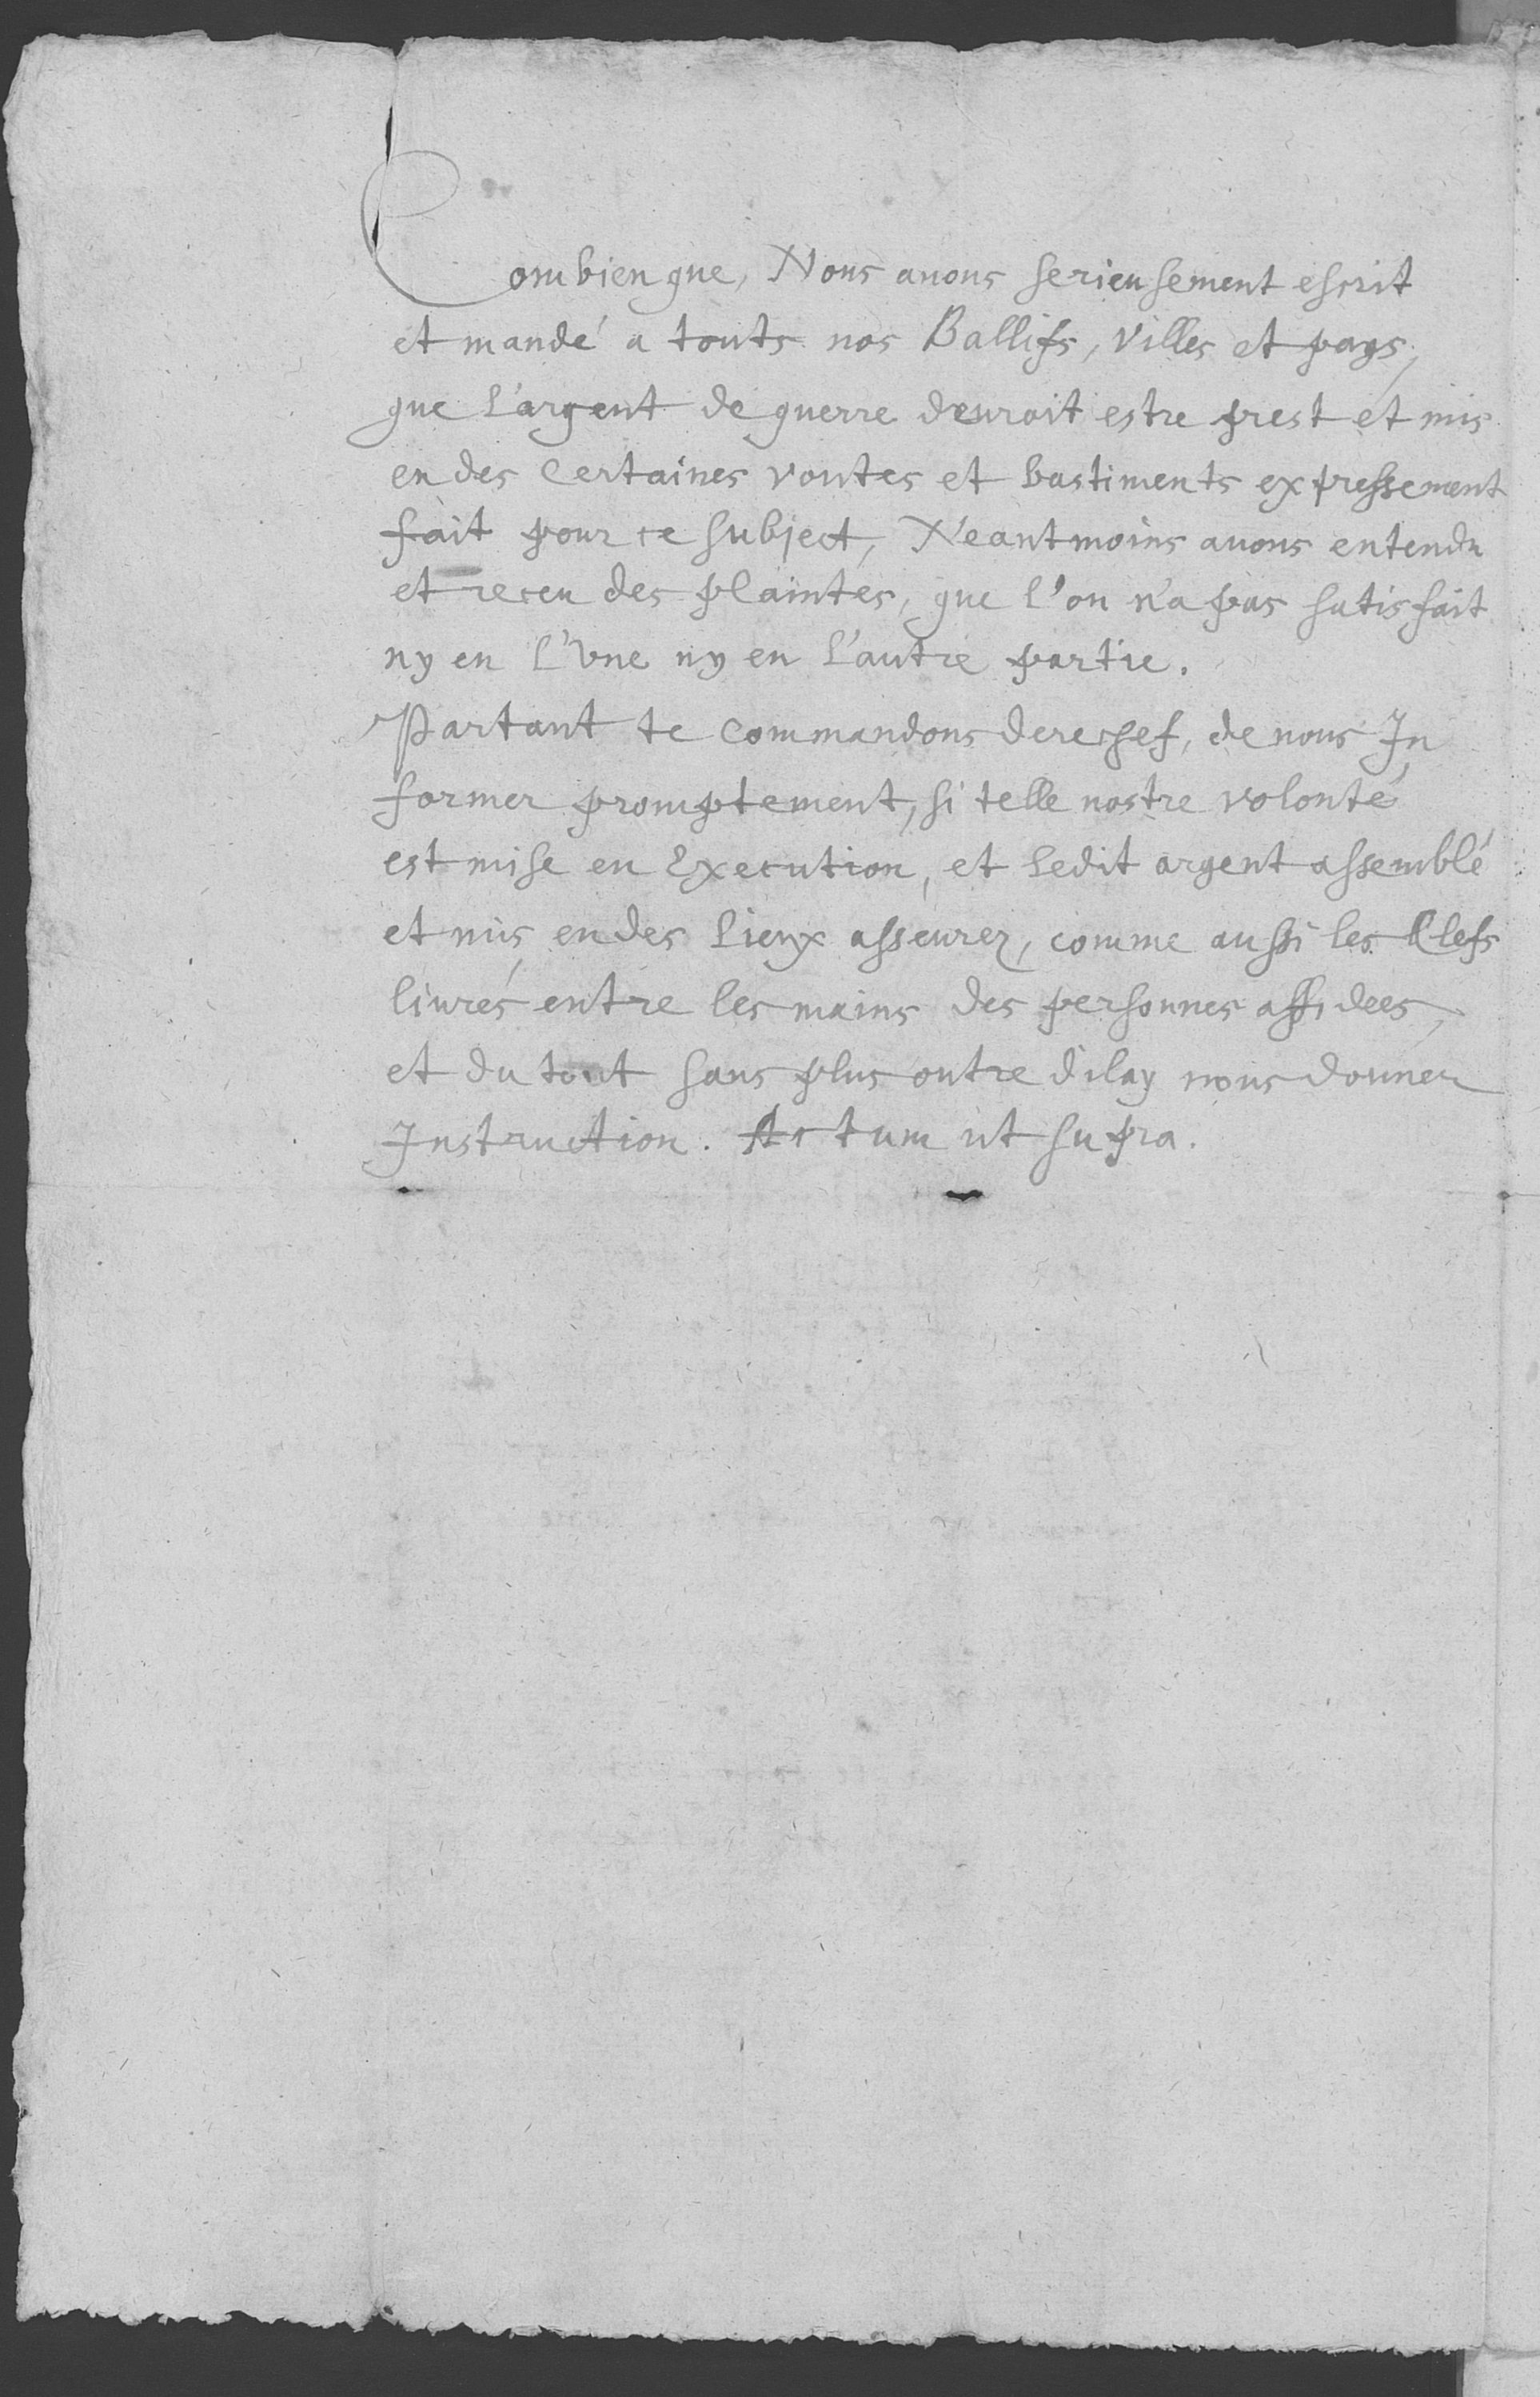 Combien que, Nous auons serieusement escrit
et mandé a touts nos Ballifs, Villes et pays,
que l'argent de guerre deuroit estre prest et mis
en des Certaines voutes et bastiments expressement
fait pour ce subject, Neantmoins auons entendu
et receu des plaintes, que l'on n'a pas satisfait
ny en l'vne ny en l'autre partie.
Partant te Commandons derechef, de nous In
former promptement, si telle nostre volonté
est mise en Execution, et ledit argent assemblé
et mis en des lieux asseurez, comme aussi les Clefs
liurés entre les mains des personnes affidees,
et du tout sans plus outre dilay nous donner
Instruction. Actum ut supra.